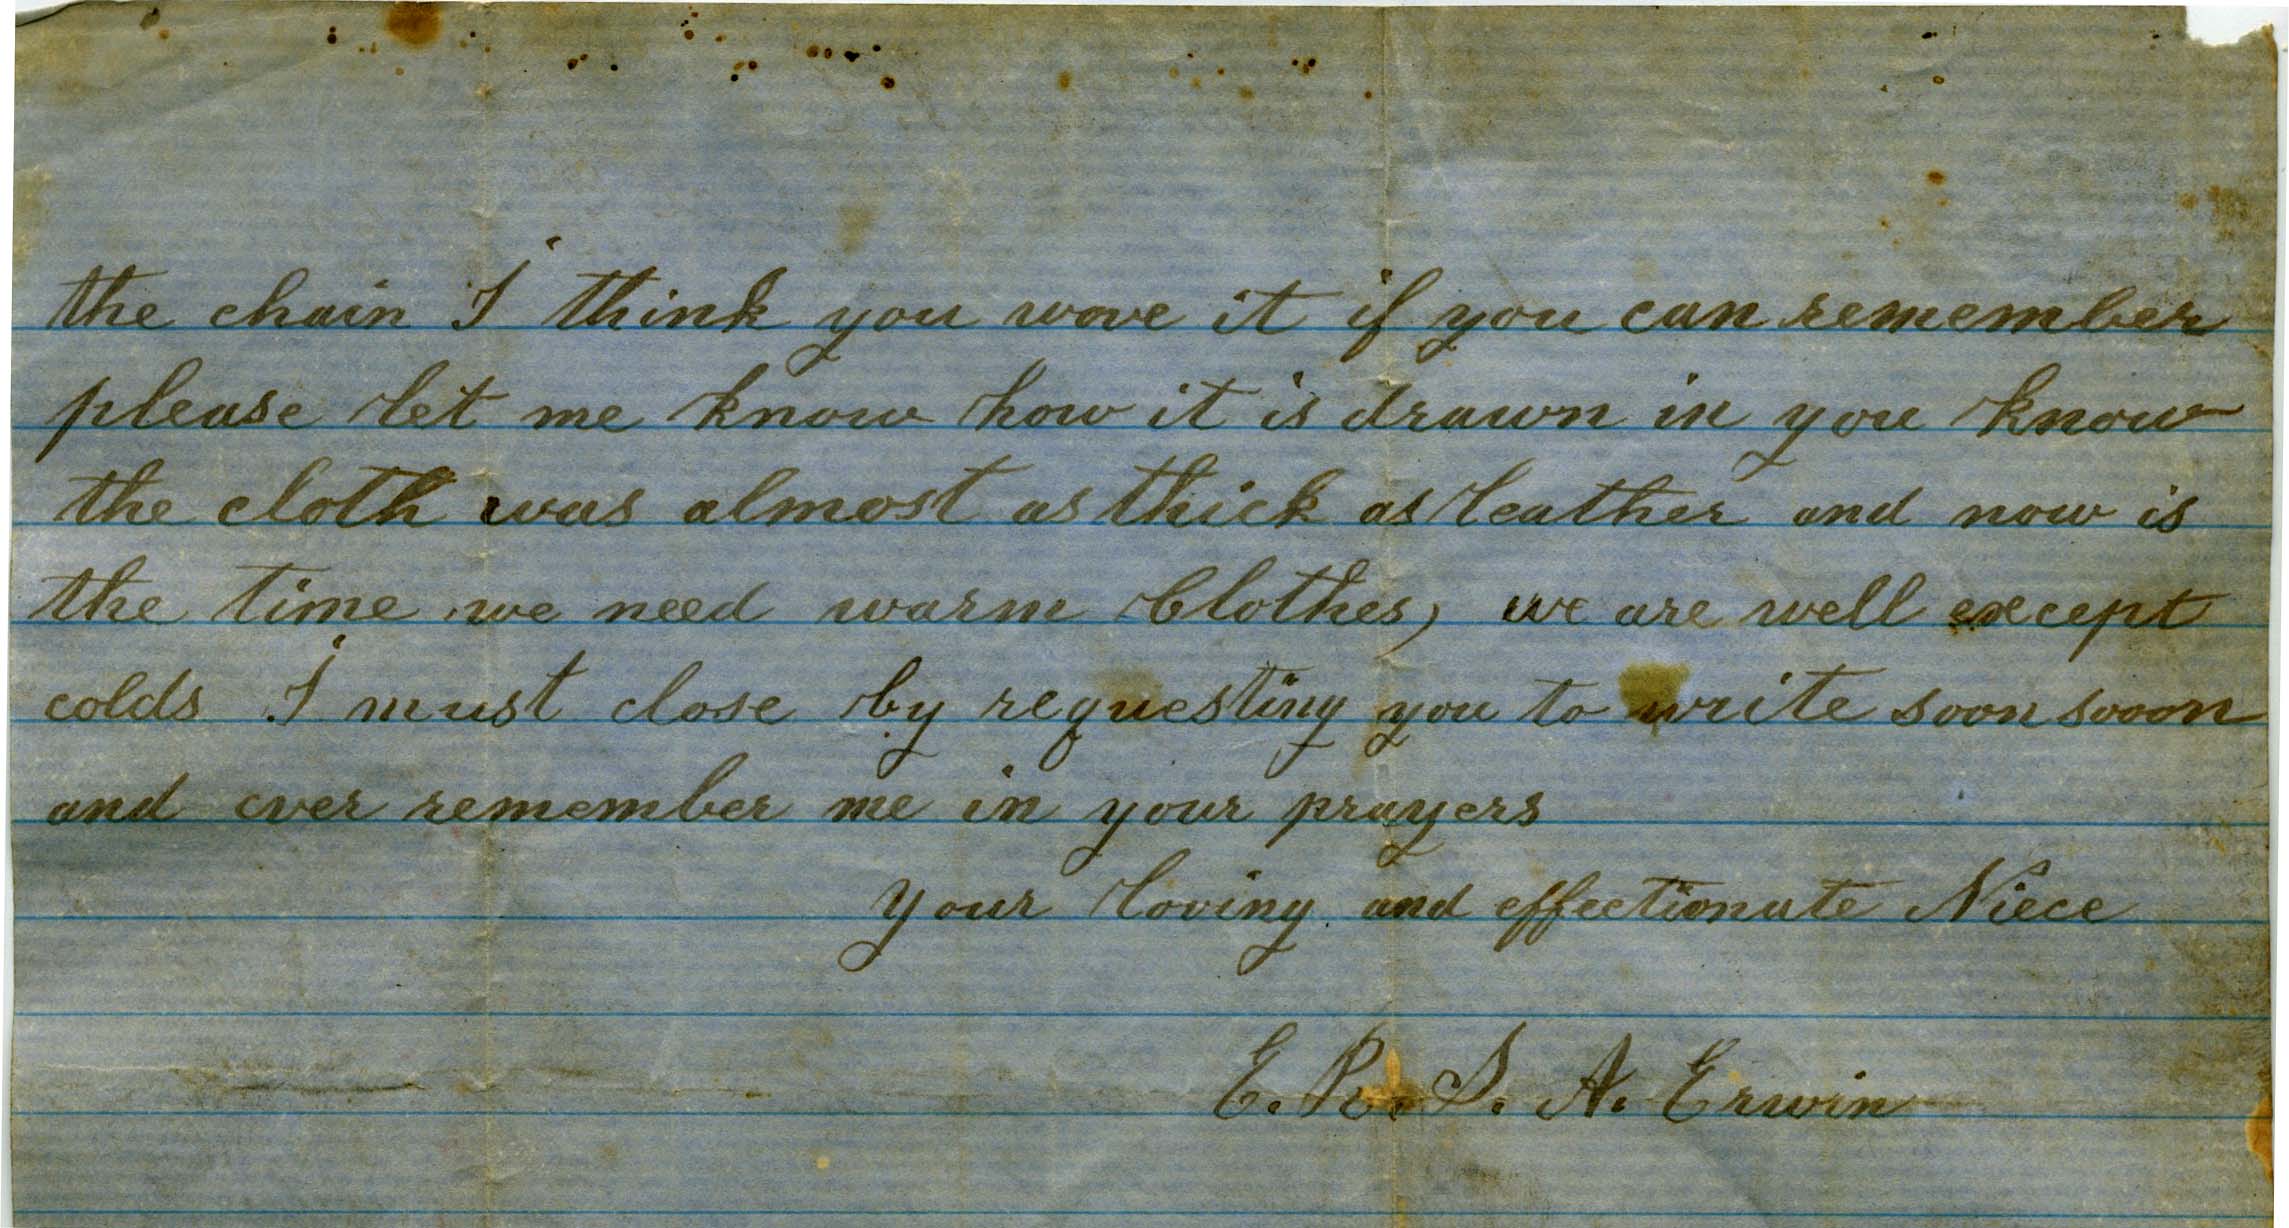 the chain I think you wove it if you can remember
please let me know how it is drawn in you know
the cloth was almost as thick as leather and now is
the time we need warm Clothes, we are well except
colds I must close by requesting you to write soon sooon
and ever remember me in your prayers
Your loving and effectionate Niece
E. R. S. A. Erwin